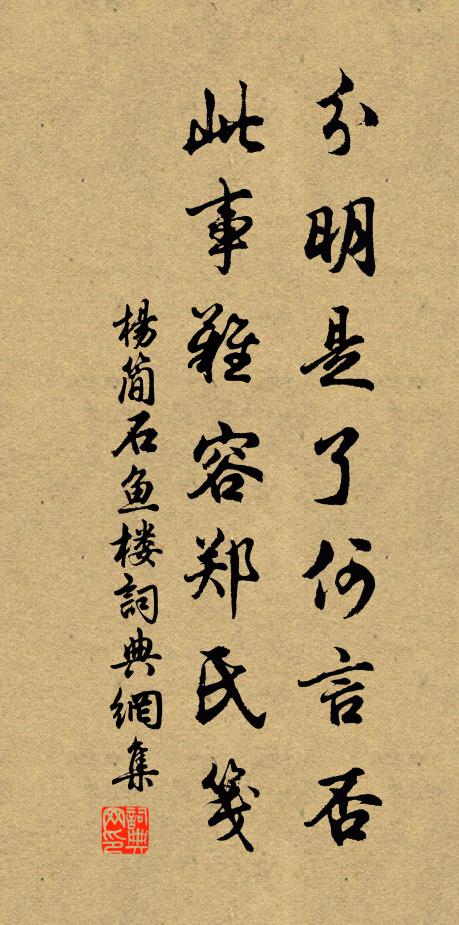 分明是了何言否
此事难容郑氏笺
杨简石鱼楼詞典網集
詞典网印